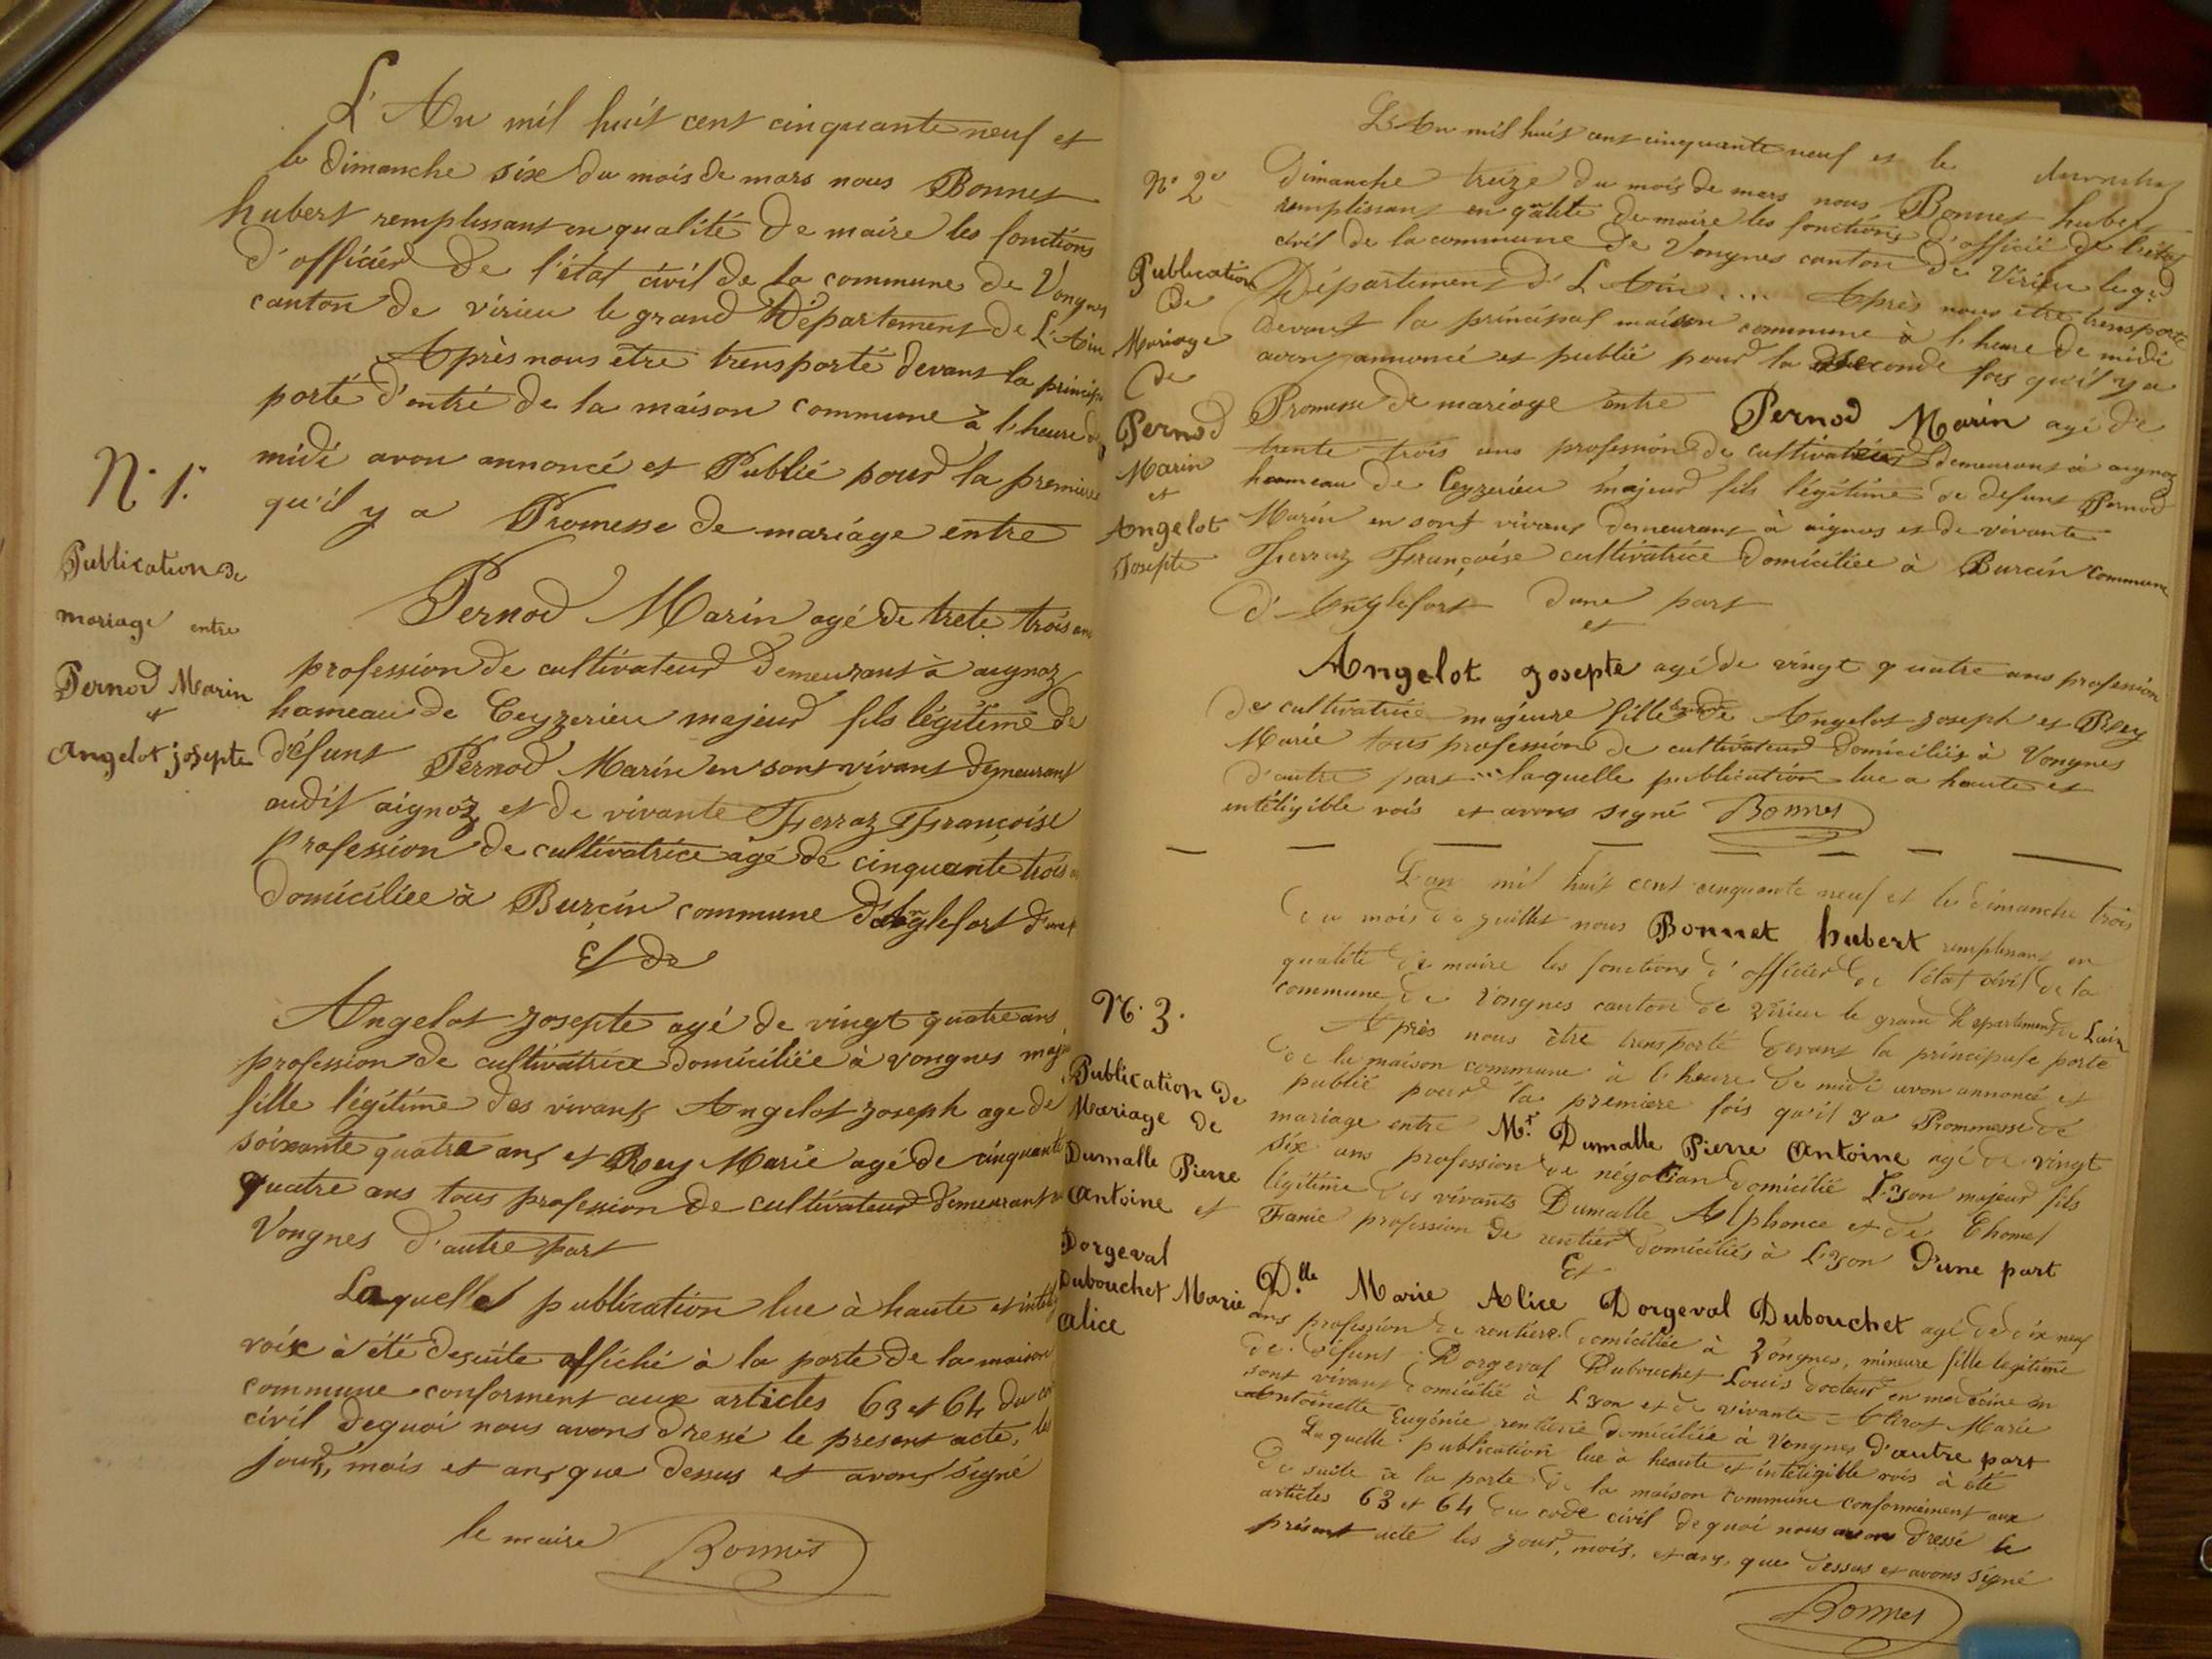 L'An mil huit cent cinquante neuf et
le dimanche six du mois de mars nous Bonnet
hubert remplissant en qualité de maire les fonctions
d'officier de l'état civil de la commune de Vongnes
canton de virieu le grand Département de L'Ain
Après nous être trensporté devant la principa
porte d'entré de la maison commune à l'heure de
N° 1.
midi avon annoncé et Publié pour la premiere
qu'il y a Promesse de mariage entre
Publication de
mariage entre
Pernod Marin
et
Angelot josepte
Pernod Marin agé de trete trois ans
profession de cultivateur demeurant à aignoz
hameau de Ceyzerieu majeur fils légitime de
défunt Pernod Marin en sont vivant demeurant
audit aignoz et de vivante Ferraz Françoise
profession de cultivatrice agé de cinquante trois
domiciliée à Burcin commune d'Anglefort d'une
Et de
Angelot josepte agé de vingt quatre ans
profession de cultivatrice domiciliée à vongnes maj
fille légitime des vivants Angelot joseph age de
soixante quatre ans et Rey Marie agé de cinquante
quatre ans tous profession de cultivateur demeurant
Vongnes d'autre part
Laquelle publication lue à haute et intel
voix à été desuite affiché à la porte de la maison
commune conforment aux articles 63 et 64 du co
civil dequoi nous avons dressé le present acte, les
jour, mois et ans que dessus et avons signé
le maire Bonnet
L'An mil huit cent cinquante neuf et le
N° 2
Dimanche treize du mois de mars nous Bonnet hubert
remplissant en qualité de maire les fonctions d'officié de l'état
civil de la commune de Vongnes canton de Virieu le gd
Département d L'Ain .... Après nous être trensporté
devant la principal maison commune à l'heure de midi
avons annoncé et publié pour la seconde fois qu'il y a
Promesse de mariage entre Pernod Marin agé de
trente trois ans profession de cultivateur demeurant à aignoz
hameau de Ceyzerieu majeur fils légitime de defunt Pernod
Marin en sont vivant demeurant à aignos et de vivante
Ferraz Françoise cultivatrice domiciliée à Burcin commune
d'Anglefort dune part
et
Publication
de
Mariage
de
Pernod
Marin
et
Angelot
Josepte
Angelot josepte agé de vingt quatre ans profession
de cultivatrice majeure fille de Angelot joseph et Rey
Marie tous profession de cultivateur domiciliés à Vongnes
d'autre part ... laquelle publication lue a haute et
intéligible vois et avons signé Bonnet
L'an mil huit cent cinquante neuf et le dimanche trois
du mois de juillet nous Bonnet hubert remplissant en
qualité de maire les fonctions d'officier de l'état civil de la
commune de Vongnes canton de Virieu le grand Département de Lain
Après nous être trensporté devant la principale porte
de la maison commune à l'heure de midi avon annoncé et
publié pour la premiere fois qu'il y a Prommesse de
mariage entre Mr. Dumalle Pierre Antoine agé de vingt
six ans profession de négotian domicilié Lyon majeur fils
légitime des vivants Dumalle Alphonce et de Chomel
Fanie profession de rentier domiciliés à Lyon D'une part
Et
N° 3.
Publication de
Mariage de
Dumalle Pierre
Antoine et
Dorgeval
Dubouchet Marie
Alice
D.lle Marie Alice Dorgeval Dubouchet agé de dix neuf
ans profession de rentiere domiciliée à Vongnes, mineure fille legitime
de défunt Dorgeval Dubouchet Louis docteur en medecine en
sont vivant domicilié à Lyon et de vivante Marie
Antoinette Eugénie rentiere domiciliée à Vongnes d'autre part
Laquelle publication lue à heaute et intéligible vois à été
de suite a la porte de la maison commune conformément aux
articles 63 et 64 du code civil de quoi nous avons dressé le
présent acte les jour, mois, et ans, que dessus et avons signé
Bonnet